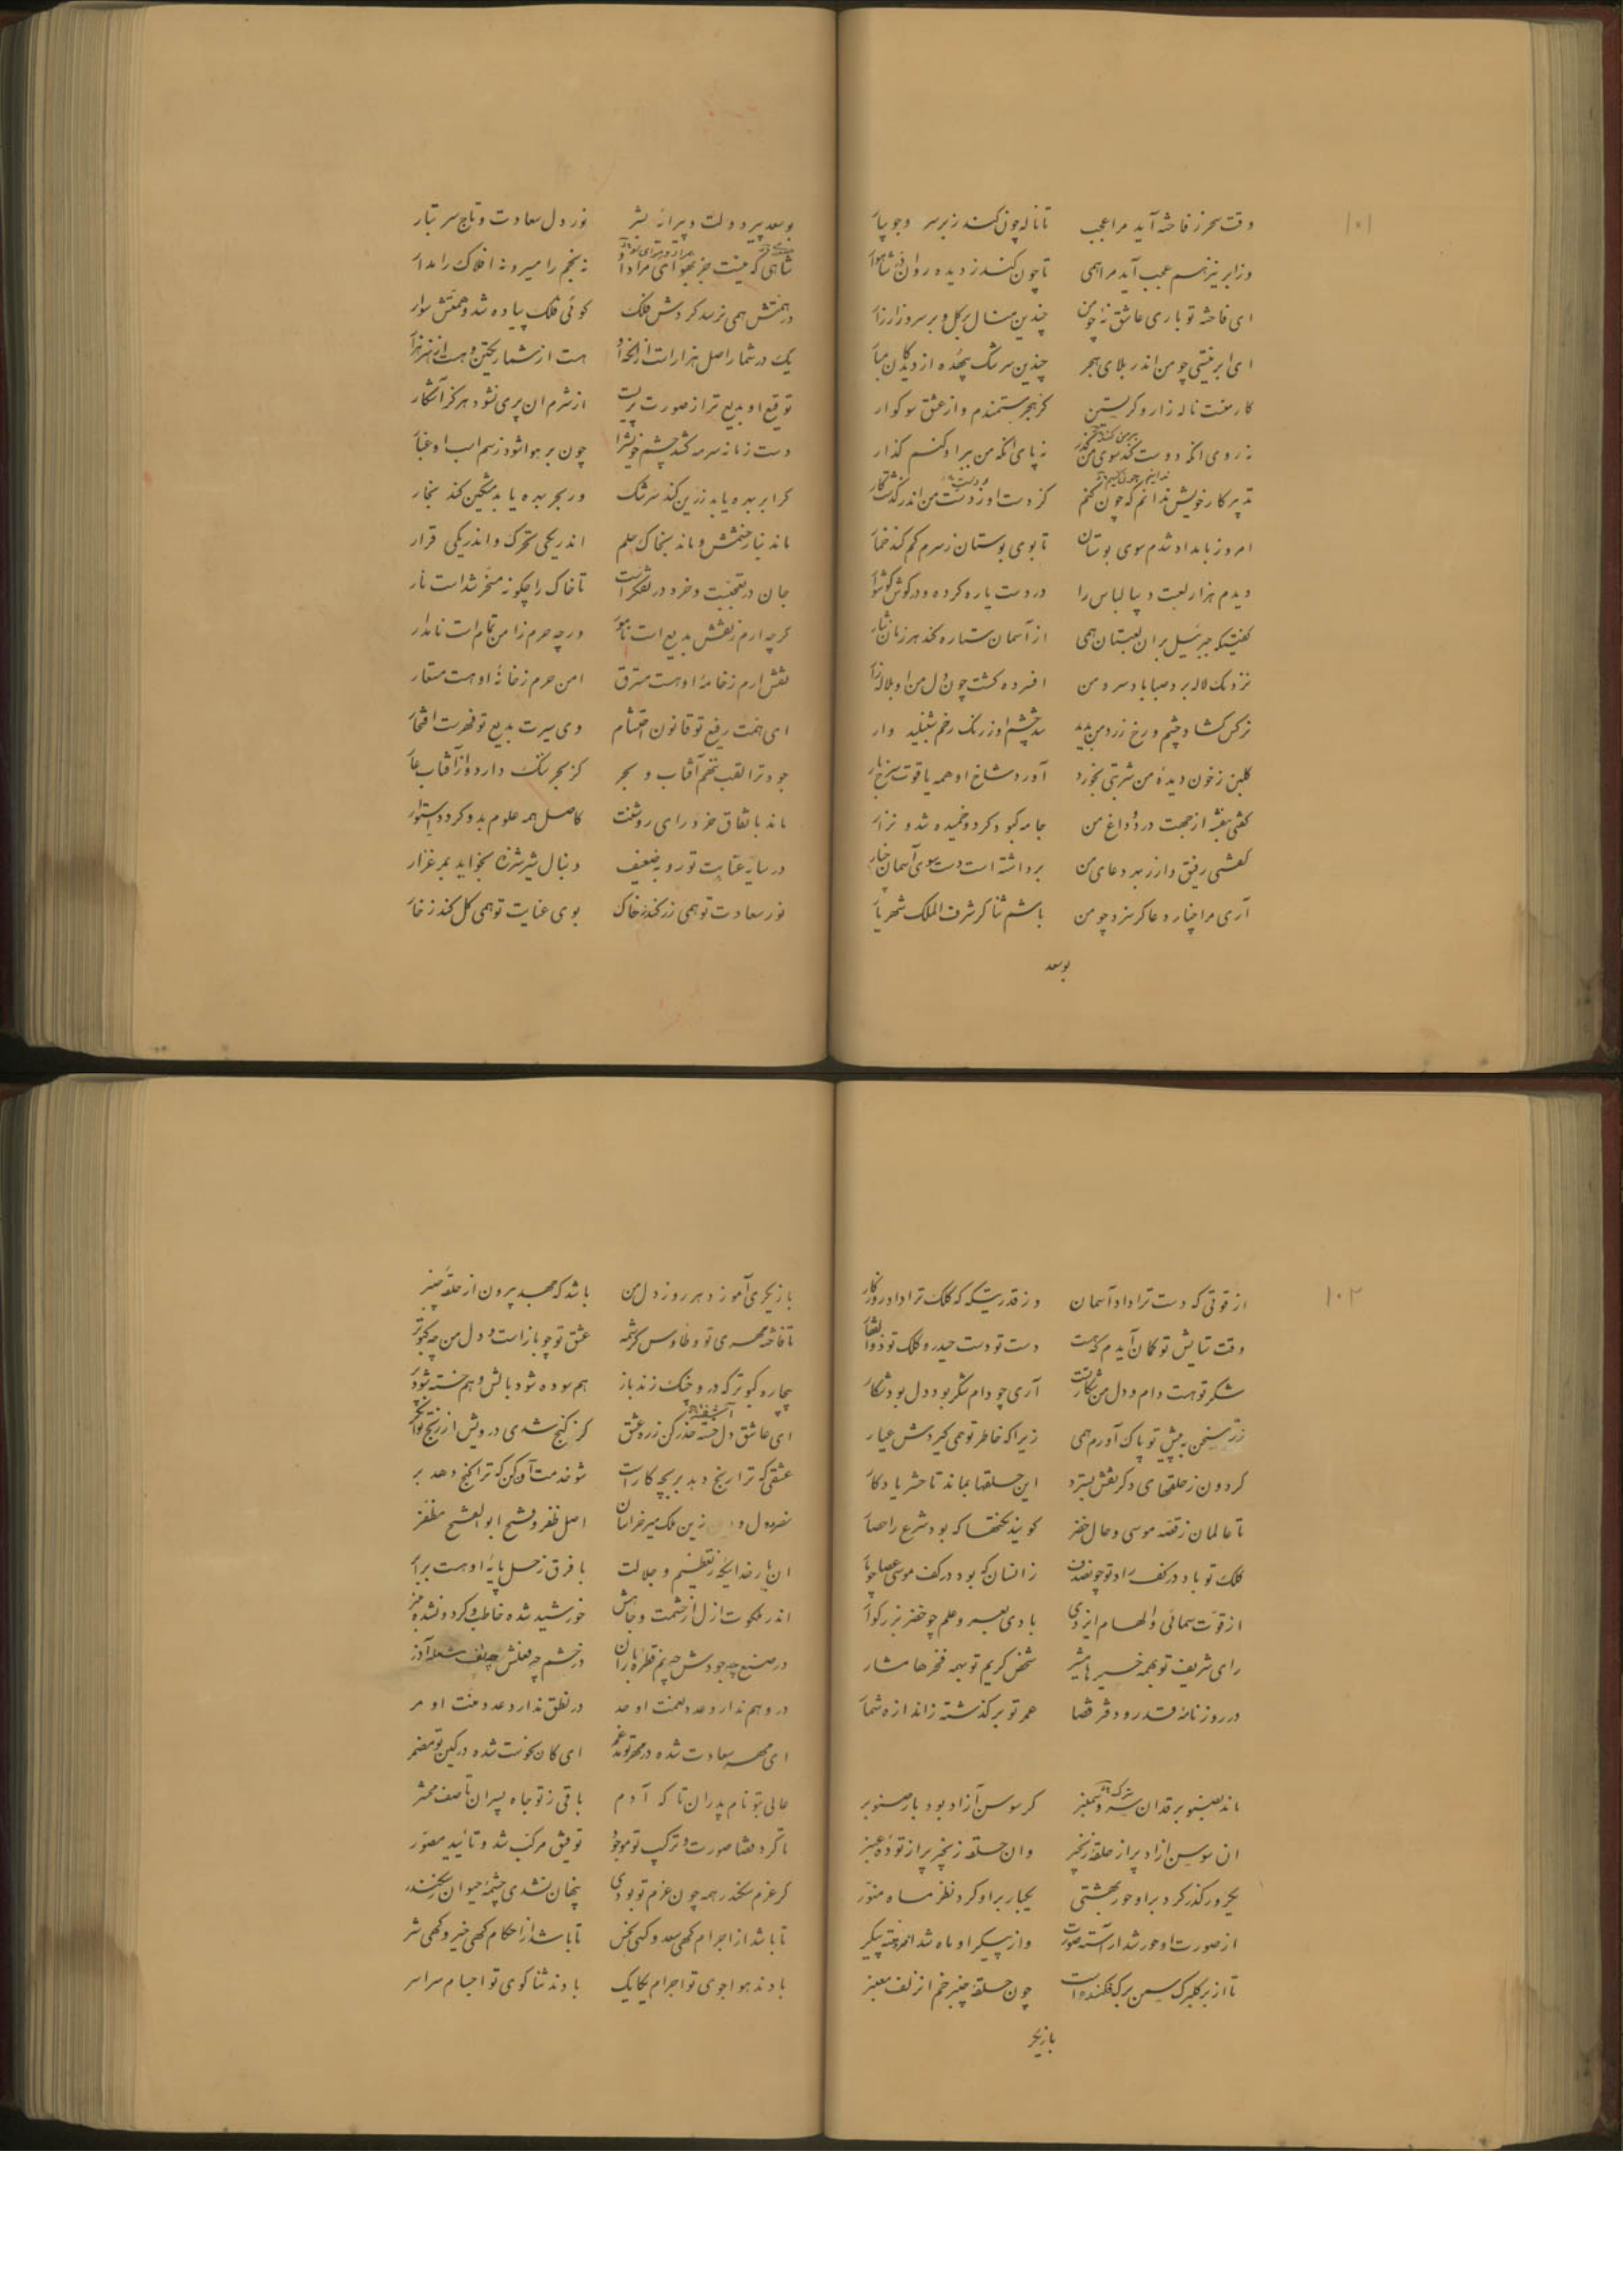 ۱۰۱
وقت سحر ز فاخته آید مرا عجب تا ناله چون کند ز بر سر و جویبار
وز ابر نیز هم عجب آید مرا همی تا چون کند ز دیده روان در شاهوار
ای فاخته تو باری عاشق نهٔ چو من چندین منال بر گل و بر سرو زار زار
ای ابر نیستی چو من اندر بلای هجر چندین سرشک بیهده از دیدگان مبار
کار منست ناله زار و گریستن کز هجر مستمندم و از عشق سوکوار
نه روی انکه دوست کند سوی من گذر نه پای انکه من بر او کنم گذار
تدبیر کار خویش ندانم که چون کنم کز دست او ز دست من اندر گذشت کار
امروز بامداد شدم سوی بوستان تا بوی بوستان ز سرم کم کند خمار
دیدم هزار لعبت دیبا لباس را در دست یاره کرده و در گوش گوشوار
گفتیکه جبرئیل بر ان لعبتان همی از آسمان ستاره کند هر زمان نثار
نزدیک لاله برد صبا باد سرد من افسرده گشت چون دل من او بلاله زار
نرگس گشاد چشم و رخ زرد من بدید شد چشم او ز رنگ رخم شنبلید وار
گلبن ز خون دیدهٔ من شربتی بخورد آورد شاخ او همه یاقوت سرخ بار
گفتی بنفشه از جهت درد و داغ من جامه کبود کرد و خمیده شد و نزار
گفتی رفیق وار ز بهر دعای من برداشته است دست سوی آسمان چنار
آری مرا چنار دعا گر سزد چو من باشم ثنا گر شرف الملک شهریار
بوسعد
بوسعد پیر دولت و پیرانه بشر نور دل سعادت و تاج سر تبار
شاهی که نیست جز بهوای مراد او نه نجم را مسیر و نه افلاک را مدار
در همتش همی نرسد گردش فلک گوئی فلک پیاده شد و همتش سوار
یک در شمار اصل هزار است از انخدا هست از شمار یکتن و هست از هنر هزار
توقیع او بدیع تر از صورت پریست از شرم ان پری نشود هرگز آشکار
دست زمانه سرمه کشد چشم خویش را چون بر هوا شود ز سم اسب او غبار
گر ابر بهره یابد زرین کند سرشک ور بحر بهره یابد مشکین کند بخار
ماند بنار خشمش و ماند بخاک حلم اندر یکی تحرک و اندر یکی قرار
جان در تعجبست و خرد در تفکر است تا خاک را چگونه مسخر شد است نار
گرچه ارم ز نقش بدیع است نامور ورچه حرم ز امن تمام است نامدار
نقش ارم ز خامهٔ او هست مسترق امن حرم ز خانهٔ او هست مستعار
ای همت رفیع تو قانون احتشام وی سیرت بدیع تو فهرست افتخار
جود ترا لقب ننهم آفتاب و بحر کز بحر ننگ دارد و از آفتاب عار
ماند باتفاق خرد رای روشنت کاصل همه علوم بدو کرد استوار
در سایه عنایت تو روبه ضعیف دنبال شیر شرزه بخواید بمرغزار
نور سعادت تو همی زر کند ز خاک بوی عنایت تو همی گل کند ز خار
۱۰۲
از قوتی که دست ترا داد آسمان وز قدرتیکه کلک ترا داد روزگار
وقت ستایش تو گمان آیدم که هست دست تو دست حیدر و کلک تو ذوالفقار
شکر تو هست دام و دل من شکار تست آری چو دام شکر بود دل بود شکار
زر سخن به پیش تو پاک آورم همی زیرا که خاطر تو همی گیردش عیار
گردون ز حلقهای دگر نقش بسترد این حلقها بماند تا حشر یادگار
تا عالمان ز قصه موسی و حال خضر گویند نکتها که بود شرع را حصار
کلک تو باد در کف راد تو چونهان زانسان که بود در کف موسی عصا چو مار
از قوت سمائی و الهام ایزدی بادی بصبر و علم چو خضر بزرگوار
رای شریف تو بهمه خیرها مشیر شخص کریم تو بهمه فخرها مشار
در روزنامهٔ قدر و دفتر قضا عمر تو بر گذشته ز اندازه شمار
ماند بصنوبر قد ان سیمبر گر سوسن آزاد بود بار صنوبر
ان سوسن ازاد پر از حلقه زنجیر وان حلقه زنجیر پر از تودهٔ عنبر
یکروز گذر کرد بر او حور بهشتی یکبار بر او کرد نظر ماه منور
از صورت او حور شد آراسته صورت وز پیکر او ماه شد افروخته پیکر
تا از بر گلبرگ سمن برگ فکنده است چون حلقهٔ چنبر خم از زلف معنبر
بازیگر
بازیگری آموزد هر روز دل من باشد که جهد بیرون از حلقهٔ چنبر
تا فاخته مهری تو و طاوس کرشمه عشق تو چو باز است و دل من چو کبوتر
بیچاره کبوتر که در او چنگ زند باز هم سوده شود بالش و هم خسته شود پر
ای عاشق دل خسته حذر کن ز ره عشق کز گنج شدی درویش از رنج توانگر
عشقی که ترا رنج دهد بر بچه کار است شو خدمت آن کن که ترا گنج دهد بر
نصر دول و زین ملک میر خراسان اصل ظفر و فتح ابو الفتح مظفر
ان بار خدائیکه ز تعظیم و جلالت با فرق زحل پایهٔ او هست برابر
اندر ملکوت ازل از حشمت و جاهش خورشید شده خاطب و گردون شده منبر
در صنع چه جودش چه نم قطره باران در خشم چه فعلش چه تف شعله آذر
در وهم ندارد عدد نعمت او حد در نطق ندارد عدد منت او مر
ای مهر سعادت شده در مهر تو مدغم ای کان نحوست شده در کین تو مضمر
عالی بتو نام پدران تا که آدم باقی ز تو جاه پسران تا صف محشر
تا کرد قضا صورت و ترکیب تو موجود توفیق مرکب شد و تائید مصور
گر عزم سکندر همه چون عزم تو بودی پنهان نشدی چشمهٔ حیوان ز سکندر
تا باشد از اجرام گهی سعد و گهی نحس تا باشد از احکام گهی خیر و گهی شر
بادند هوا جوی تو اجرام یکایک بادند ثنا گوی تو اجسام سراسر